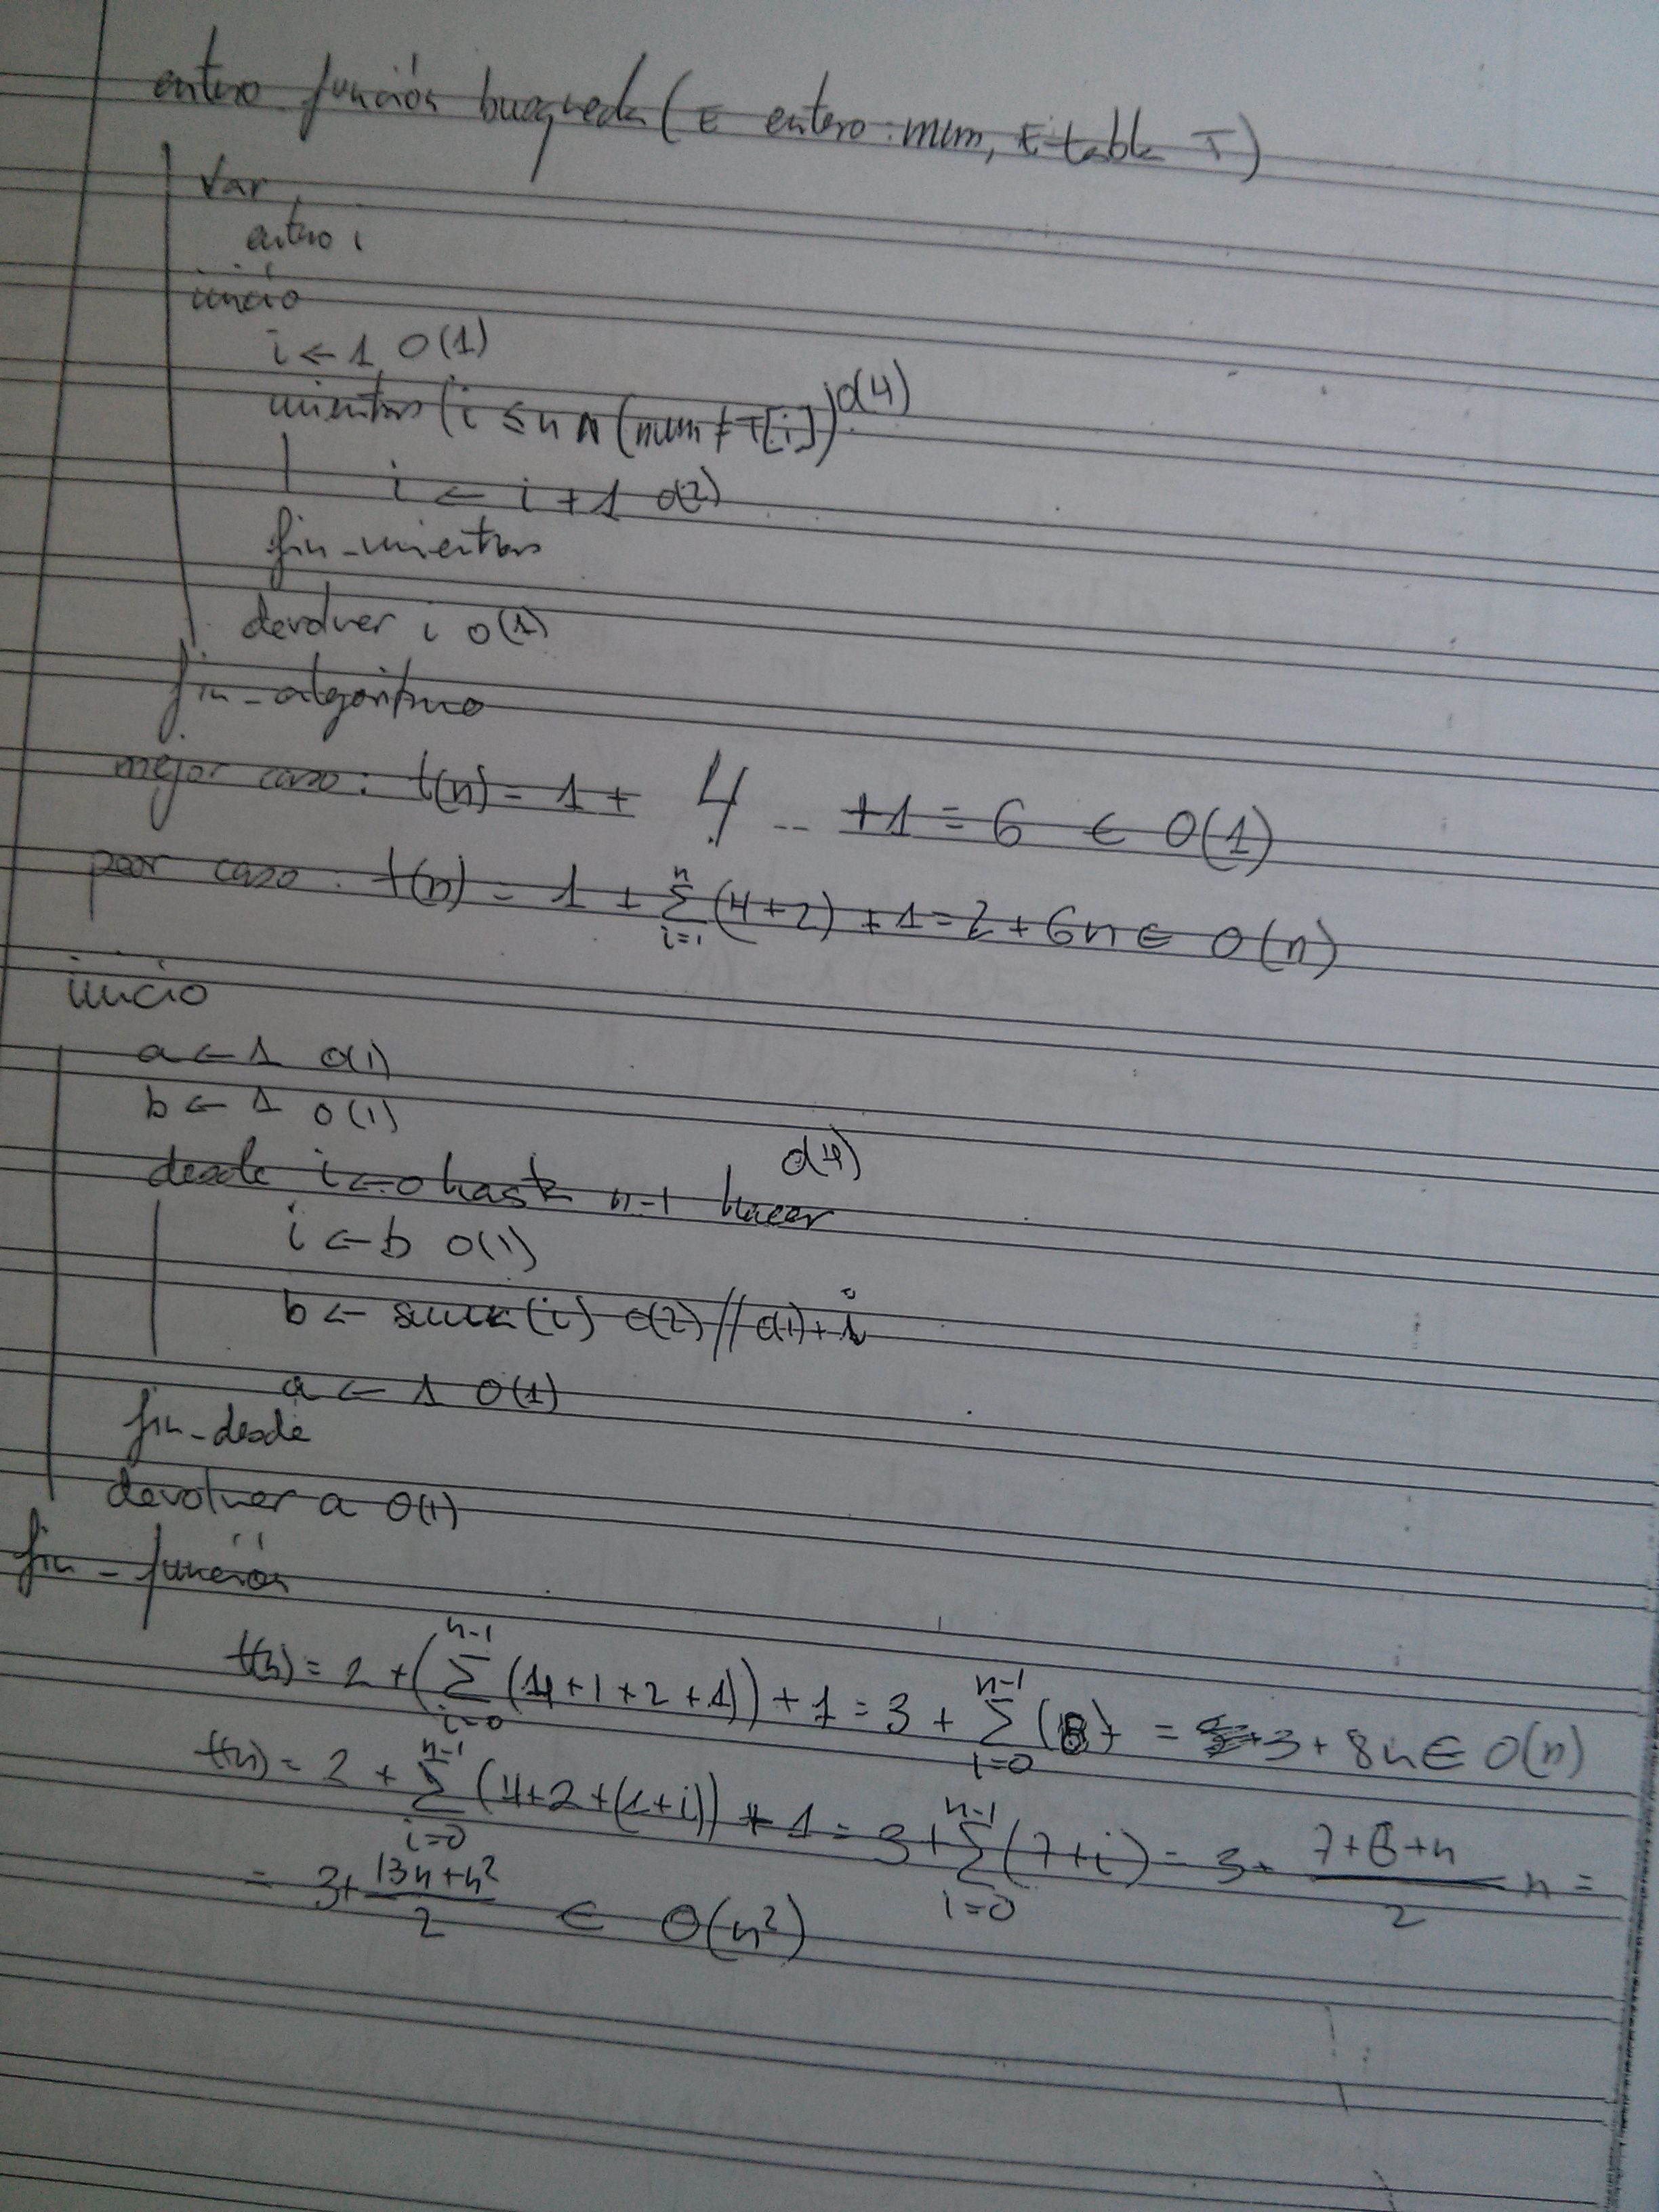 entero función busqueda (E entero: num, E tabla T)
var
entero i
inicio
i ← 1 O(1)
mientras (i ≤ n ∧ (num ≠ T[i]) O(4)
i ← i + 1 O(2)
fin-mientras
devolver i O(1)
fin-algoritmo
mejor caso: t(n) = 1 + 4 +1 = 6 ∈ O(1)
peor caso: t(n) = 1 + Σ_{i=1}^{n} (4+2) + 1 = 2 + 6n ∈ O(n)
inicio
a ← 1 O(1)
b ← 1 O(1)
desde i ← 0 hasta n-1 hacer O(4)
i ← b O(1)
b ← suma(i) O(2) // O(1) + i
a ← 1 O(1)
fin-desde
devolver a O(1)
fin-función
t(n) = 2 + (Σ_{i=0}^{n-1} (4+1+2+1)) + 1 = 3 + Σ_{i=0}^{n-1} (8) = 3 + 8n ∈ O(n)
t(n) = 2 + Σ_{i=0}^{n-1} (4+2+(1+i)) + 1 = 3 + Σ_{i=0}^{n-1} (7+i) = 3 + (7+6+n)/2 n =
= 3 + (13n+n²)/2 ∈ O(n²)